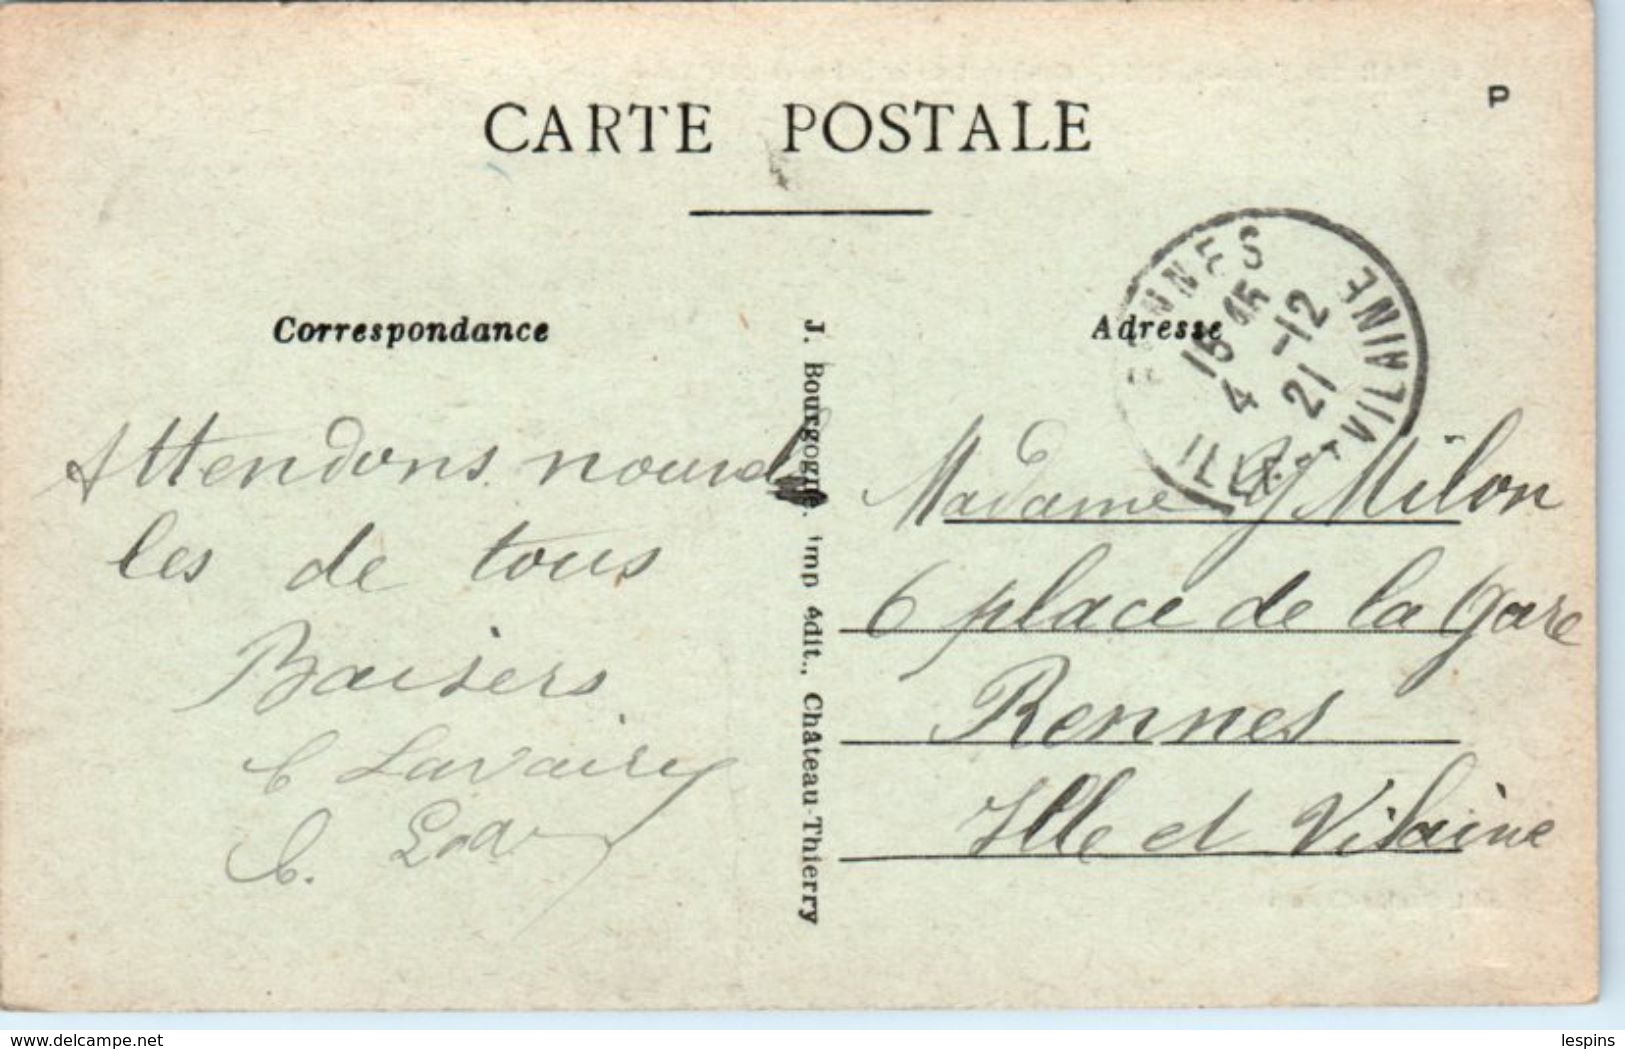 CARTE POSTALE
P
Correspondance
Adresse
RENNES
15 45
4 -12
21
ILLE-ET-VILAINE
J. Bourgogne. imp édit., Château-Thierry
Attendons nouvel
les de tous
Baisers
Madame Milon
6 place de la gare
Rennes
Ille et Vilaine
www.delcampe.net
lespins